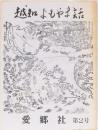 越知よもやま話
愛郷社 第2号